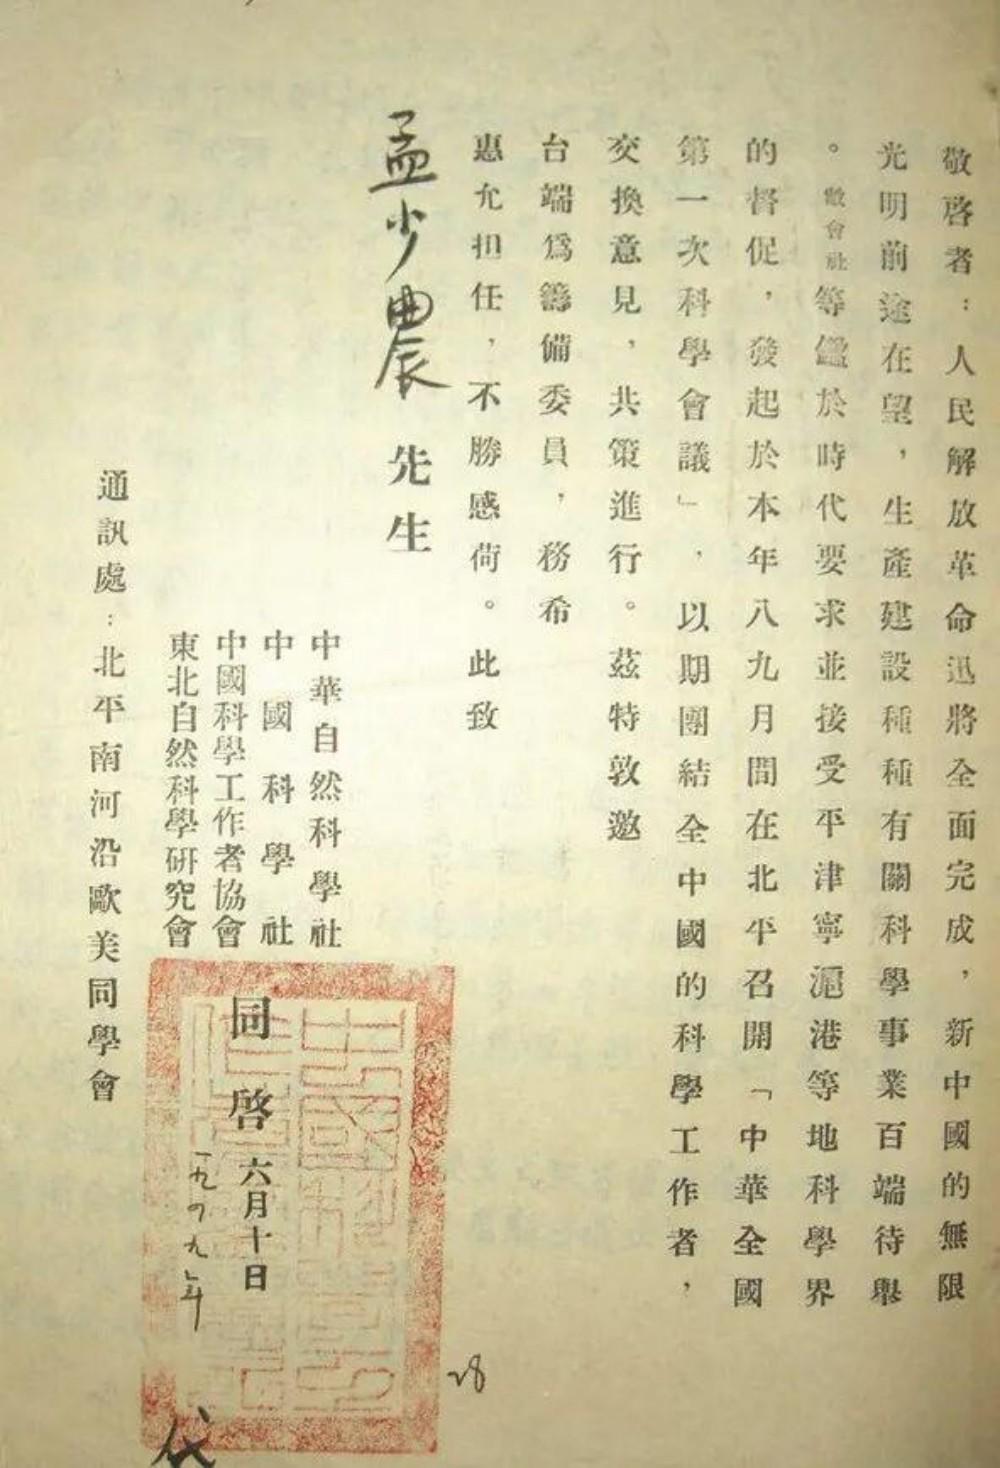 敬啓者：人民解放革命迅將全面完成，新中國的無限
光明前途在望，生產建設種種有關科學事業百端待舉
。敝會社等鑑於時代要求並接受平津寧滬港等地科學界
的督促，發起於本年八九月間在北平召開「中華全國
第一次科學會議」，以期團結全中國的科學工作者，
交換意見，共策進行。茲特敦邀
台端爲籌備委員，務希
惠允担任，不勝感荷。此致
孟少農 先生
中華自然科學社
中國科學社
中國科學工作者協會
東北自然科學研究會
同啓 六月十日
一九四九年
通訊處：北平南河沿歐美同學會
代
28